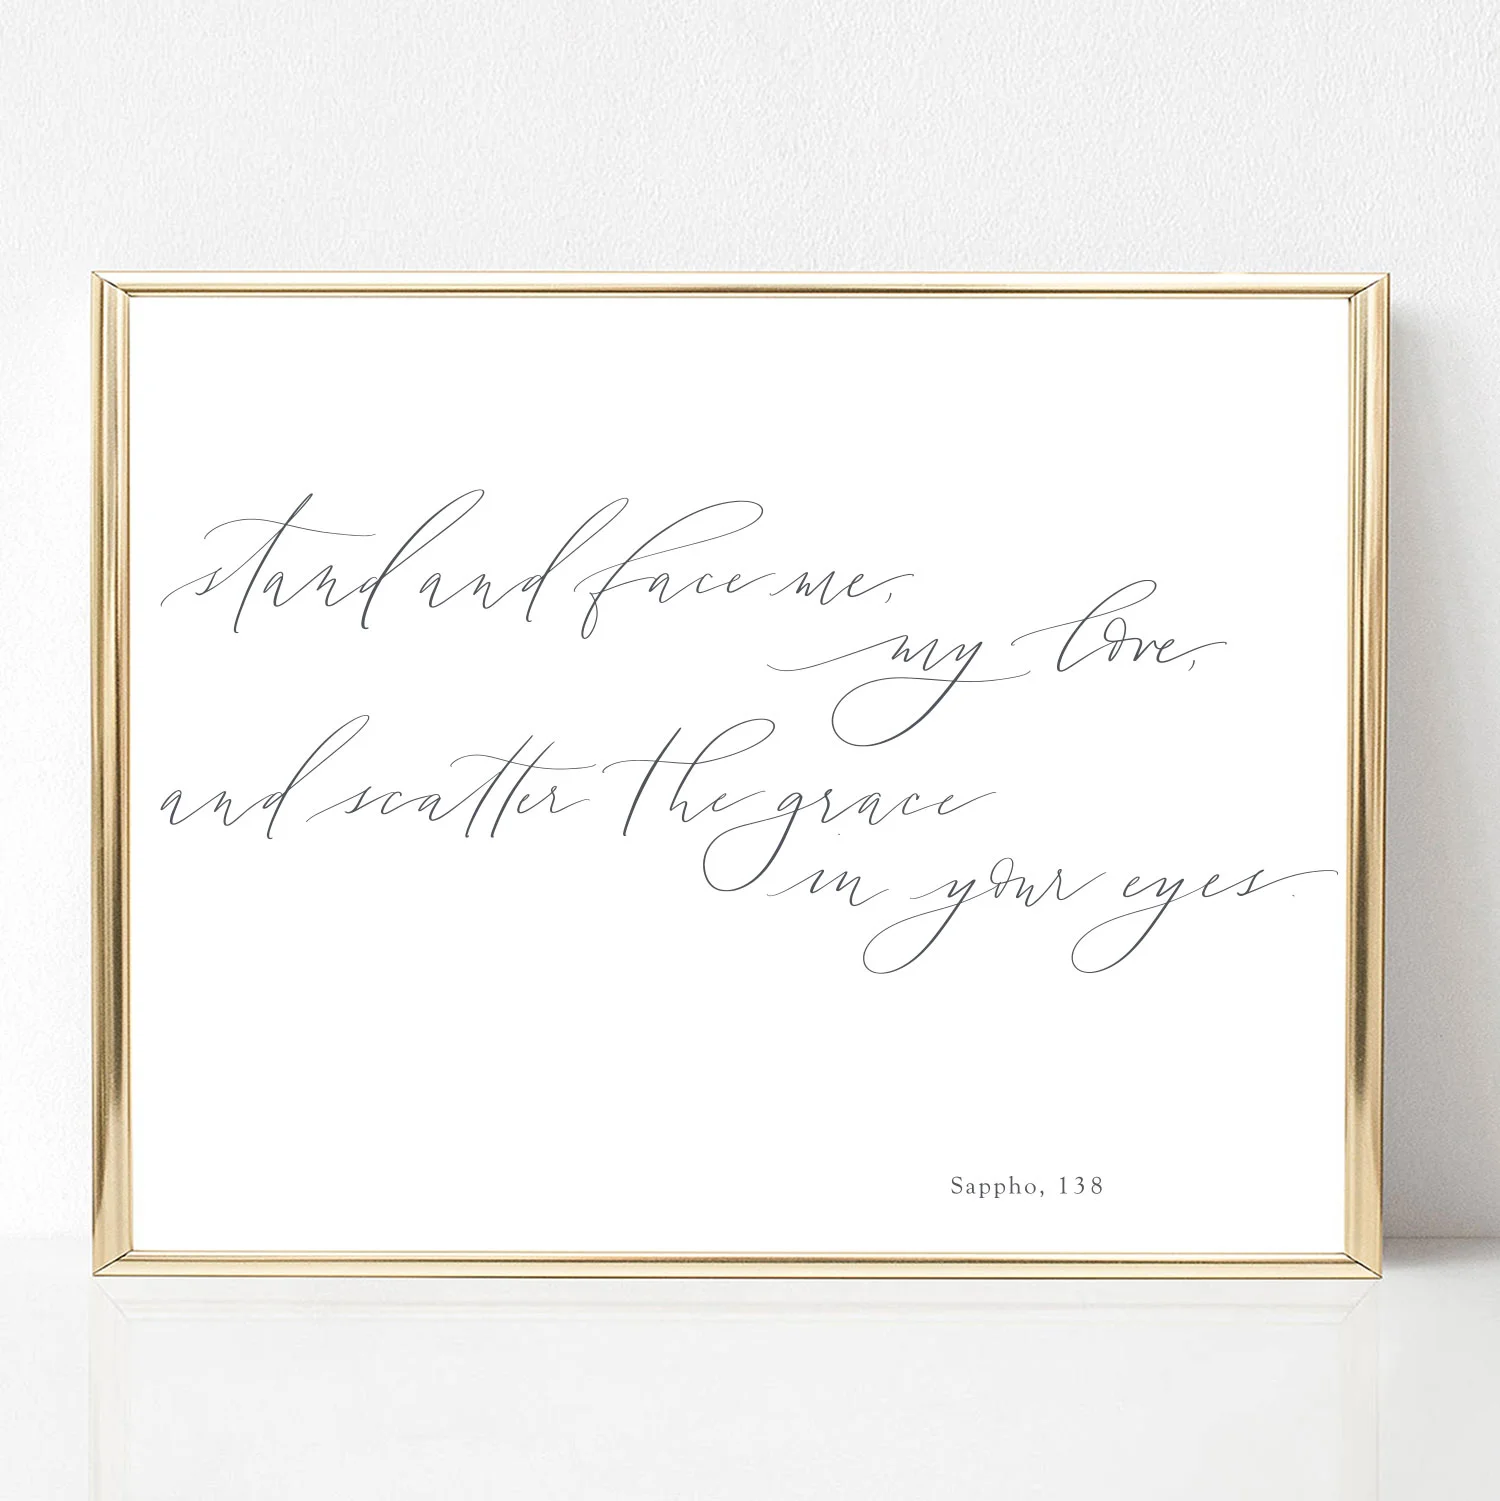 stand and face me,
my love,
and scatter the grace
in your eyes.
Sappho, 138